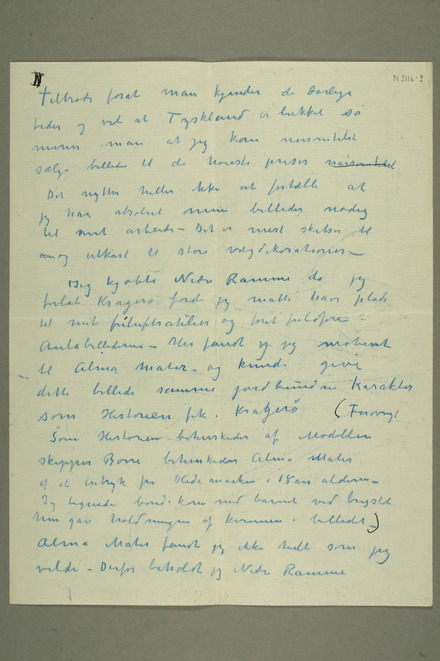 N
N 3116-3
Tiltrods forat man kjender de daarlige
tider og ved at Tyskland er lukket så
mener man at jeg kan uavladelig
sælge billeder til de høieste priser
Det nytter heller ikke at fortælle at
jeg har absolut mine billeder nødig
til mit arbeide – Det er mest skitser til
og utkast til store vægdekorationer –
Jeg kjøbte Nedre Ramme da jeg
forlot Kragerø fordi jeg måtte have plads
til mit friluftsatelier og for at fuldføre
Aulabillederne – Her fandt jeg motivet
til Alma Mater – og kunde give
dette billede samme jordbundne Karakter
som Historien fik i Kragerø (
Som Historien beherskedes af Modellen
skipper Børre beherskedes Alma Mater
af et indtryk fra Hedemarken i 18 års alderen –
En bonde kone med barnet ved brystet
Hun gav holdningen af kvinnen i billedet –)
Alma Mater fandt jeg ikke helt som jeg
vilde – Derfor beholdt jeg Nedre Ramme